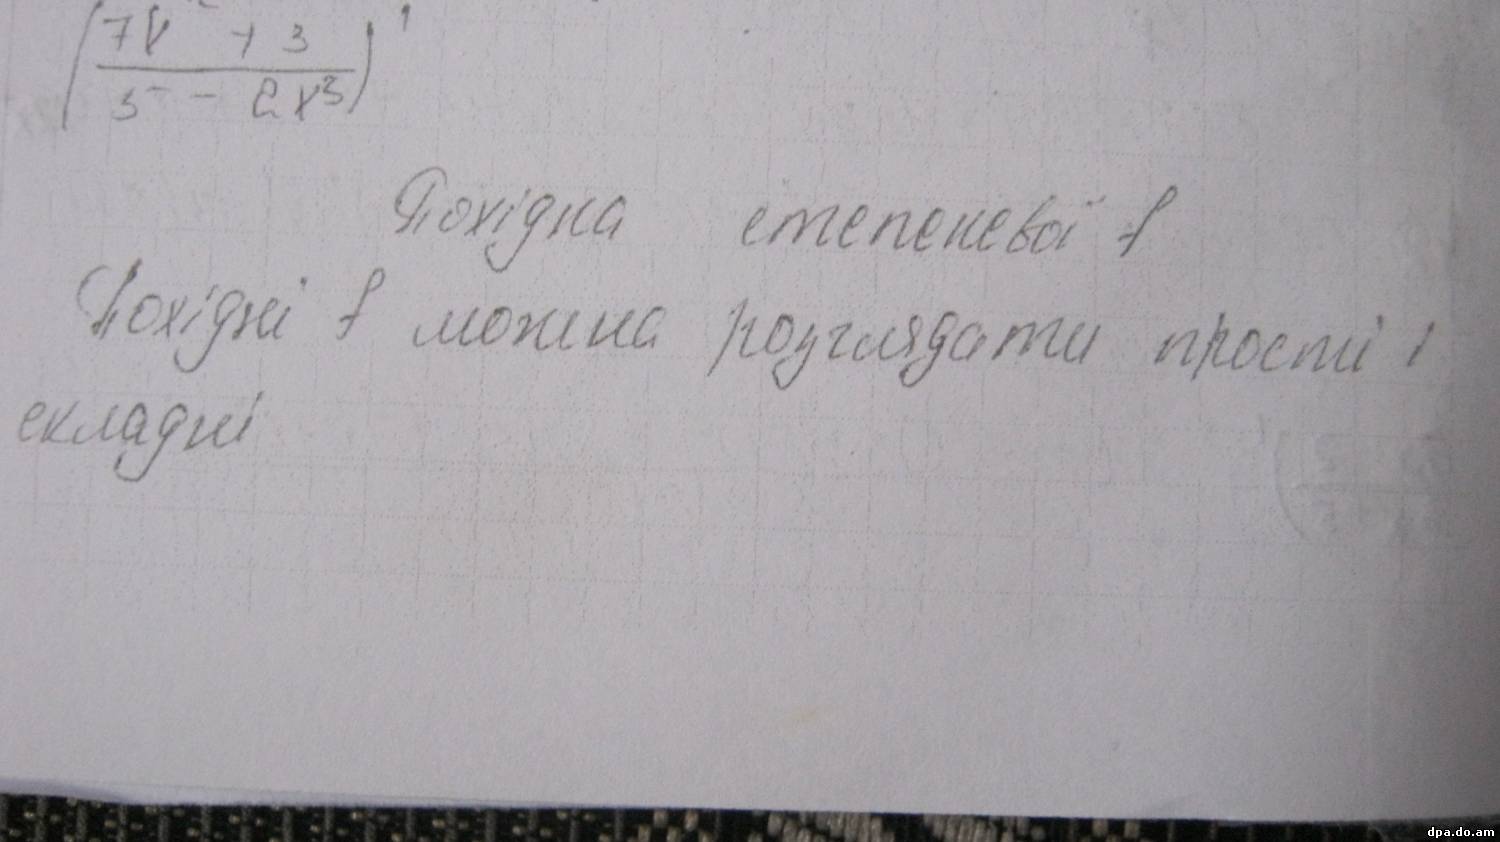 (7x² + 3)'
5 - 2x³
Похідна степеневої f
Похідні f можна розглядати прості і
складні
dpa.do.am